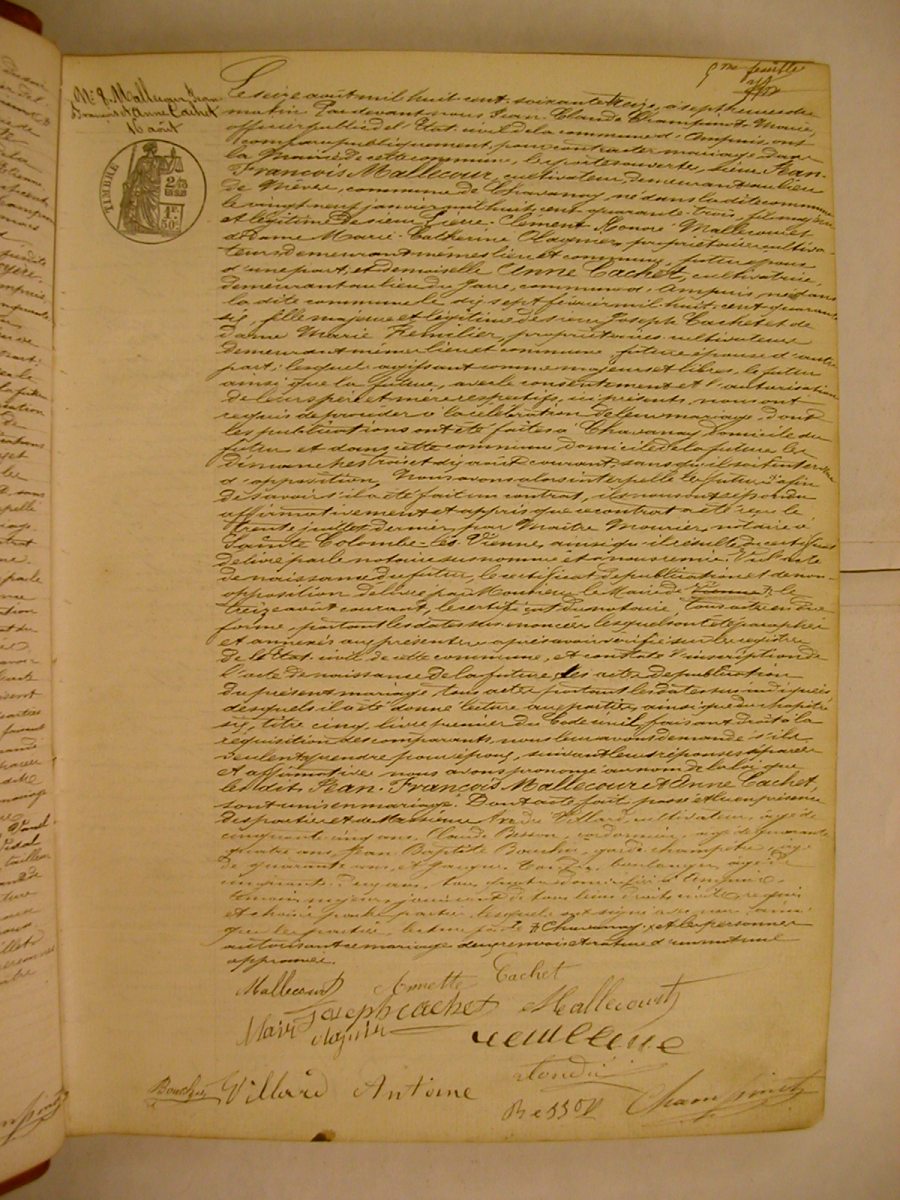 5me feuille
No 8. Mallecour Jean
François et Anne Cachet
16 août
TIMBRE
Le seize août mil huit cent soixante treize, à sept heures du
matin Par devant nous Jean Claude Champinot Maire,
officier public de l'Etat civil de la commune d'Ampuis, ont
comparu publiquement, pour contracter mariage dans
la Mairie de cette commune, les portes ouvertes, sieur Jean-
François Mallecour, cultivateur, demeurant au lieu
de Mève, commune de Chavanay né dans la dite commune
le vingt neuf janvier mil huit cent quarante-trois, fils majeur
et légitime de sieur Pierre-Clément Honoré Mallecour et
de Dame Marie-Catherine Clagnier, propriétaires cultiva-
teurs demeurant mêmes lieu et commune, futur époux
d'une part, et demoiselle Anne Cachet, cultivatrice,
demeurant au lieu du Gare, commune d'Ampuis, née dans
la dite commune le dix sept février mil huit cent quarante
six, fille majeure et légitime de sieur Joseph Cachet et de
dame Marie Femilier, propriétaires-cultivateurs
demeurant même lieu et commune, future épouse d'autre
part; lesquels agissant comme majeurs et libres, le futur
ainsi que la future, avec le consentement et l'autorisation
de leurs père et mère respectifs, ici présents, nous ont
requis de procéder à la célébration de leur mariage, dont
les publications ont été faites à Chavanay, domicile du
futur et dans cette commune, domicile de la future les
dimanches trois et dix août courant, sans qu'il soit intervenu
d'opposition, Nous avons alors interpellé les futurs afin
de savoir s'il a été fait un contrat, ils nous ont répondu
affirmativement et appris que ce contrat a été reçu le
trente juillet dernier, par Maître Mourier, notaire à
Sainte Colombe-les-Vienne, ainsi qu'il résulte du certificat
délivré par le notaire susnommé et à nous remis. Vu l'acte
de naissance du futur, le certificat de publication et de non-
opposition délivré par Monsieur le Maire de Vienne † le
treize août courant, le certificat du notaire, tous actes en due
forme, portant les dates sus énoncées lesquels ont été paraphés
et annexés au présent; après avoir vérifié sur le registre
de l'Etat-civil de cette commune, et constaté l'inscription de
l'acte de naissance de la future, les actes de publication
du présent mariage, tous actes portant les dates sus indiquées
desquels il a été donné lecture aux parties, ainsi que du chapitre
six, titre cinq, livre premier du Code civil, faisant droit à la
réquisition des comparants, nous leur avons demandé s'ils
veulent se prendre pour époux, suivant leurs réponses séparées
et affirmatives nous avons prononcé au nom de la loi que
les dits Jean-François Mallecour et Anne Cachet,
sont unis en mariage. Dont acte fait, passé et lu en présence
des parties et de Messieurs Villard, cultivateur, âgé de
cinquante cinq ans, Claude Besson, cordonnier, âgé de quarante
quatre ans, Jean Baptiste Bouchu, garde champêtre, âgé
de quarante ans, et Jacques boulanger, âgé de
cinquante deux ans, tous quatre domiciliés à Ampuis
témoins majeurs, jouissant de tous leurs droits civils, requis
et choisis par les parties, lesquels ont signé avec nous ainsi
que les parties, lecture faite. † Chavanay, et les personnes
autorisant ce mariage deux renvois et rature d'un mot nul
approuvés.
Mallecour Annette Cachet
Joseph cachet Mallecourt
Marie Clagnier
Bouchu Villard Antoine
Besson Champinot